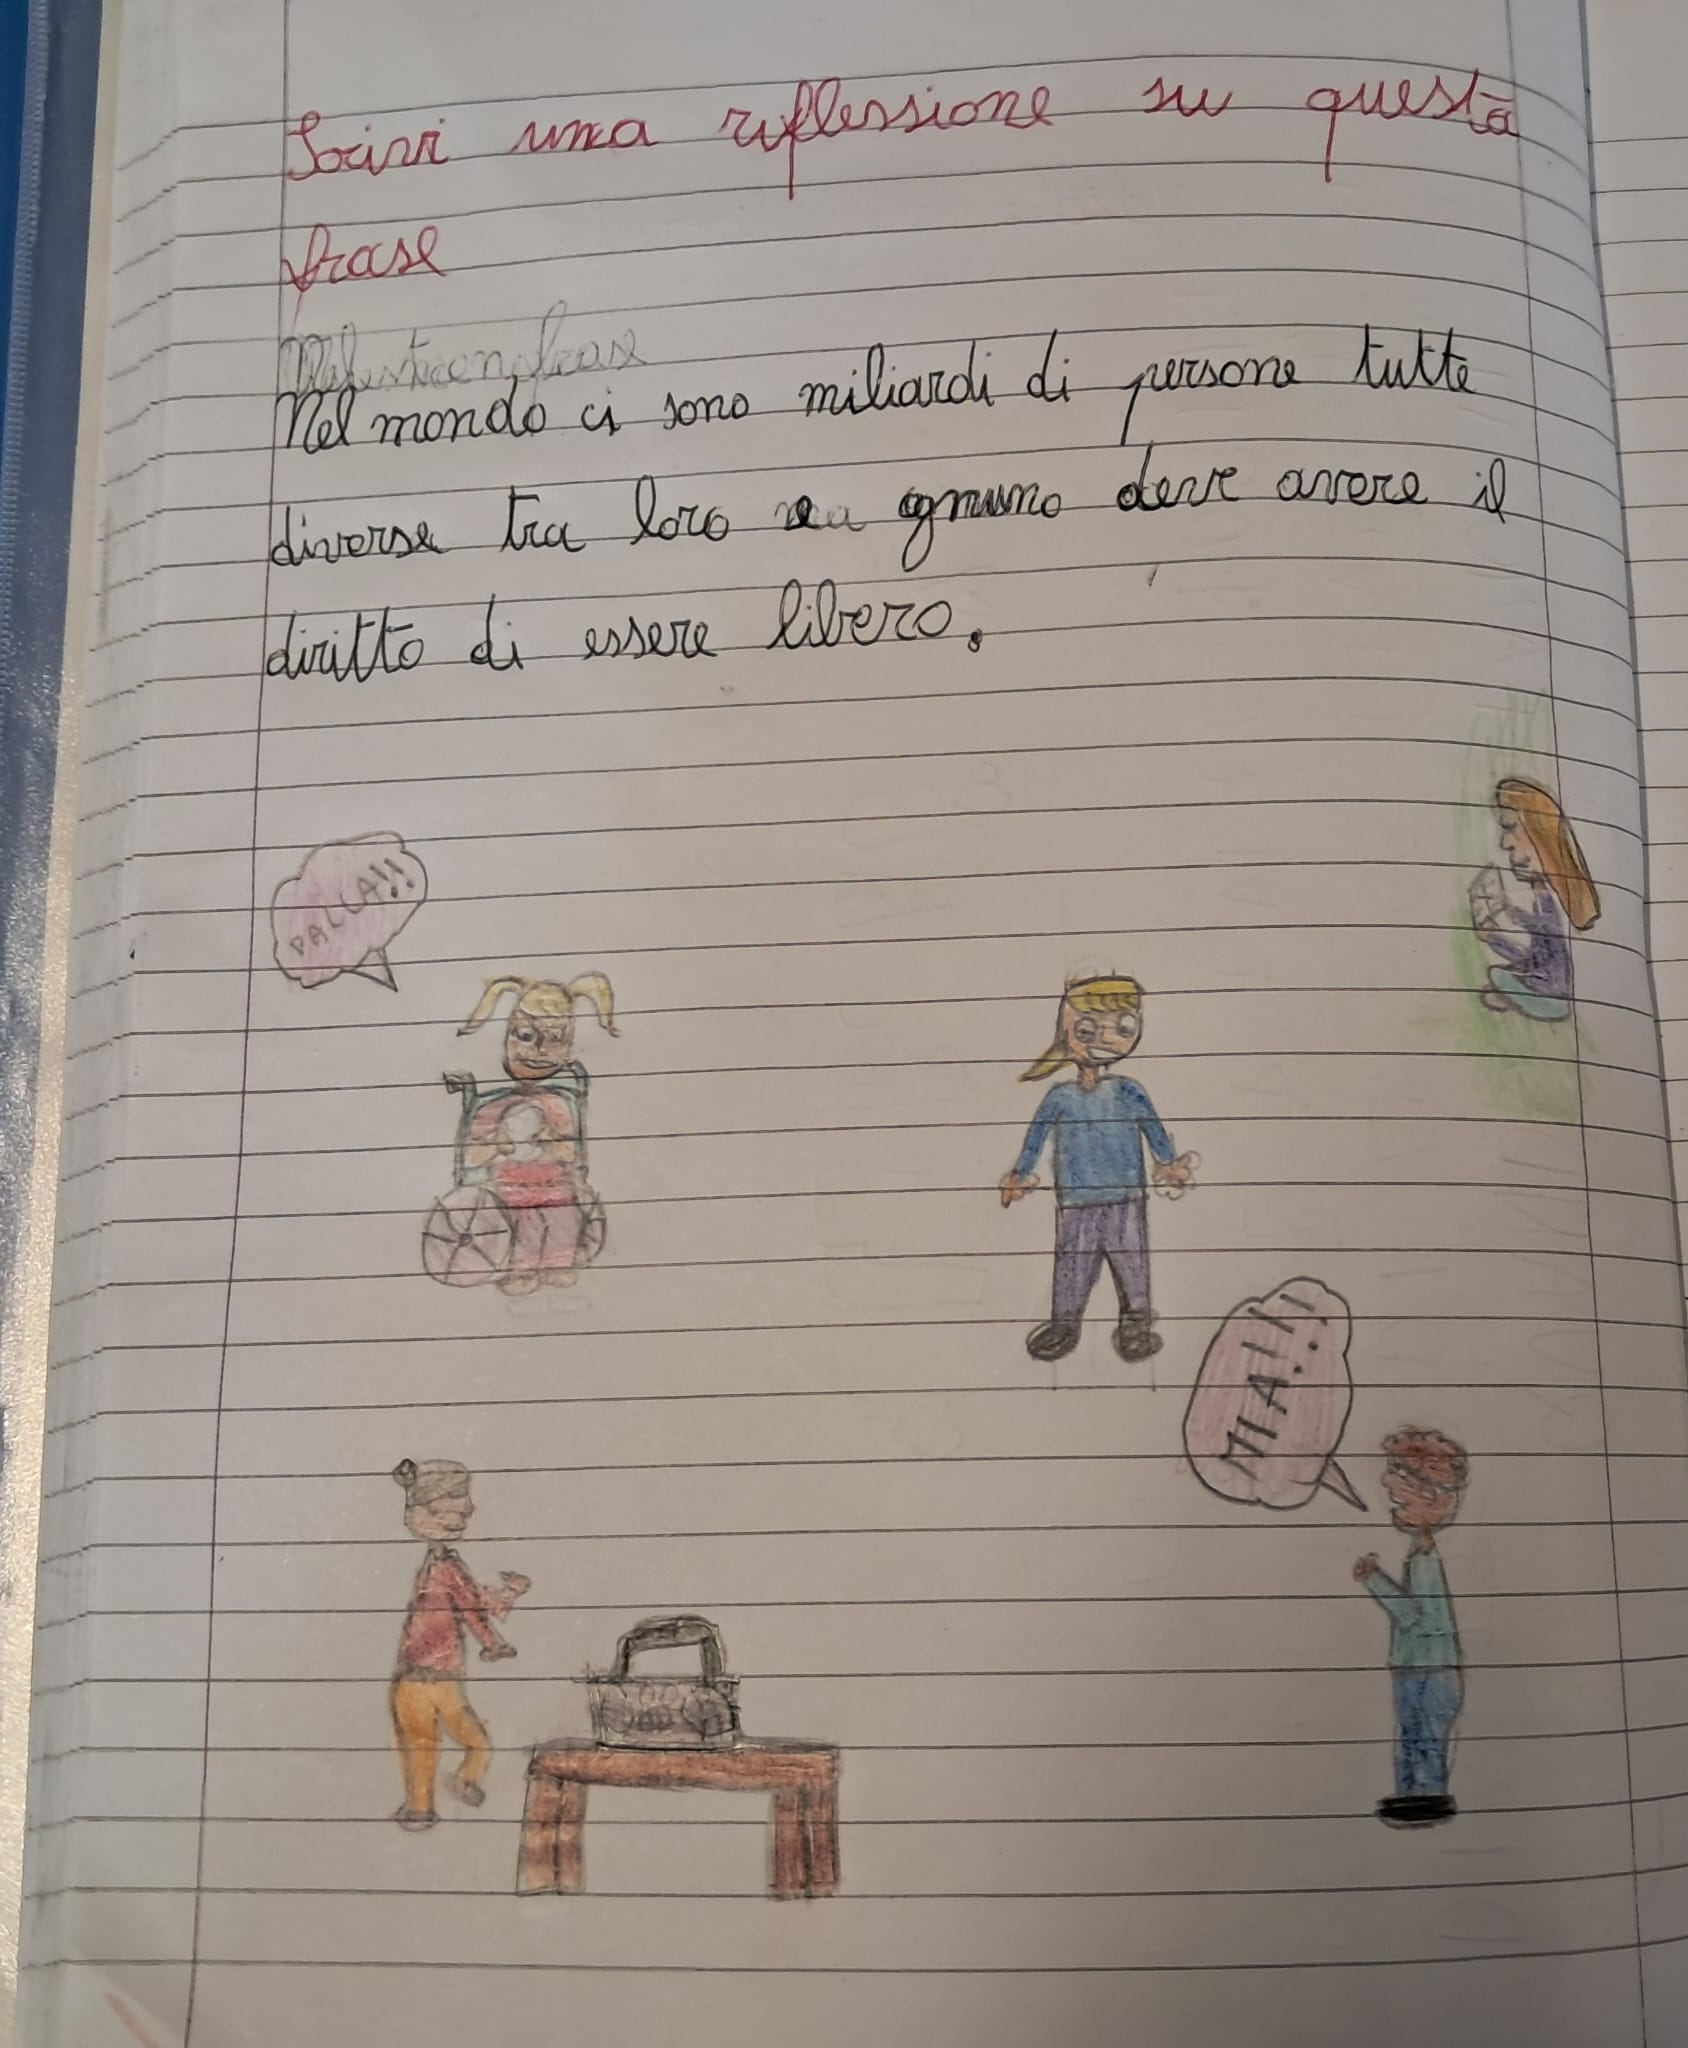 Scrivi una riflessione su questa
frase
Nel mondo ci sono miliardi di persone tutte
diverse tra loro ma ognuno deve avere il
diritto di essere libero.
PALLA!!
MIA!!!